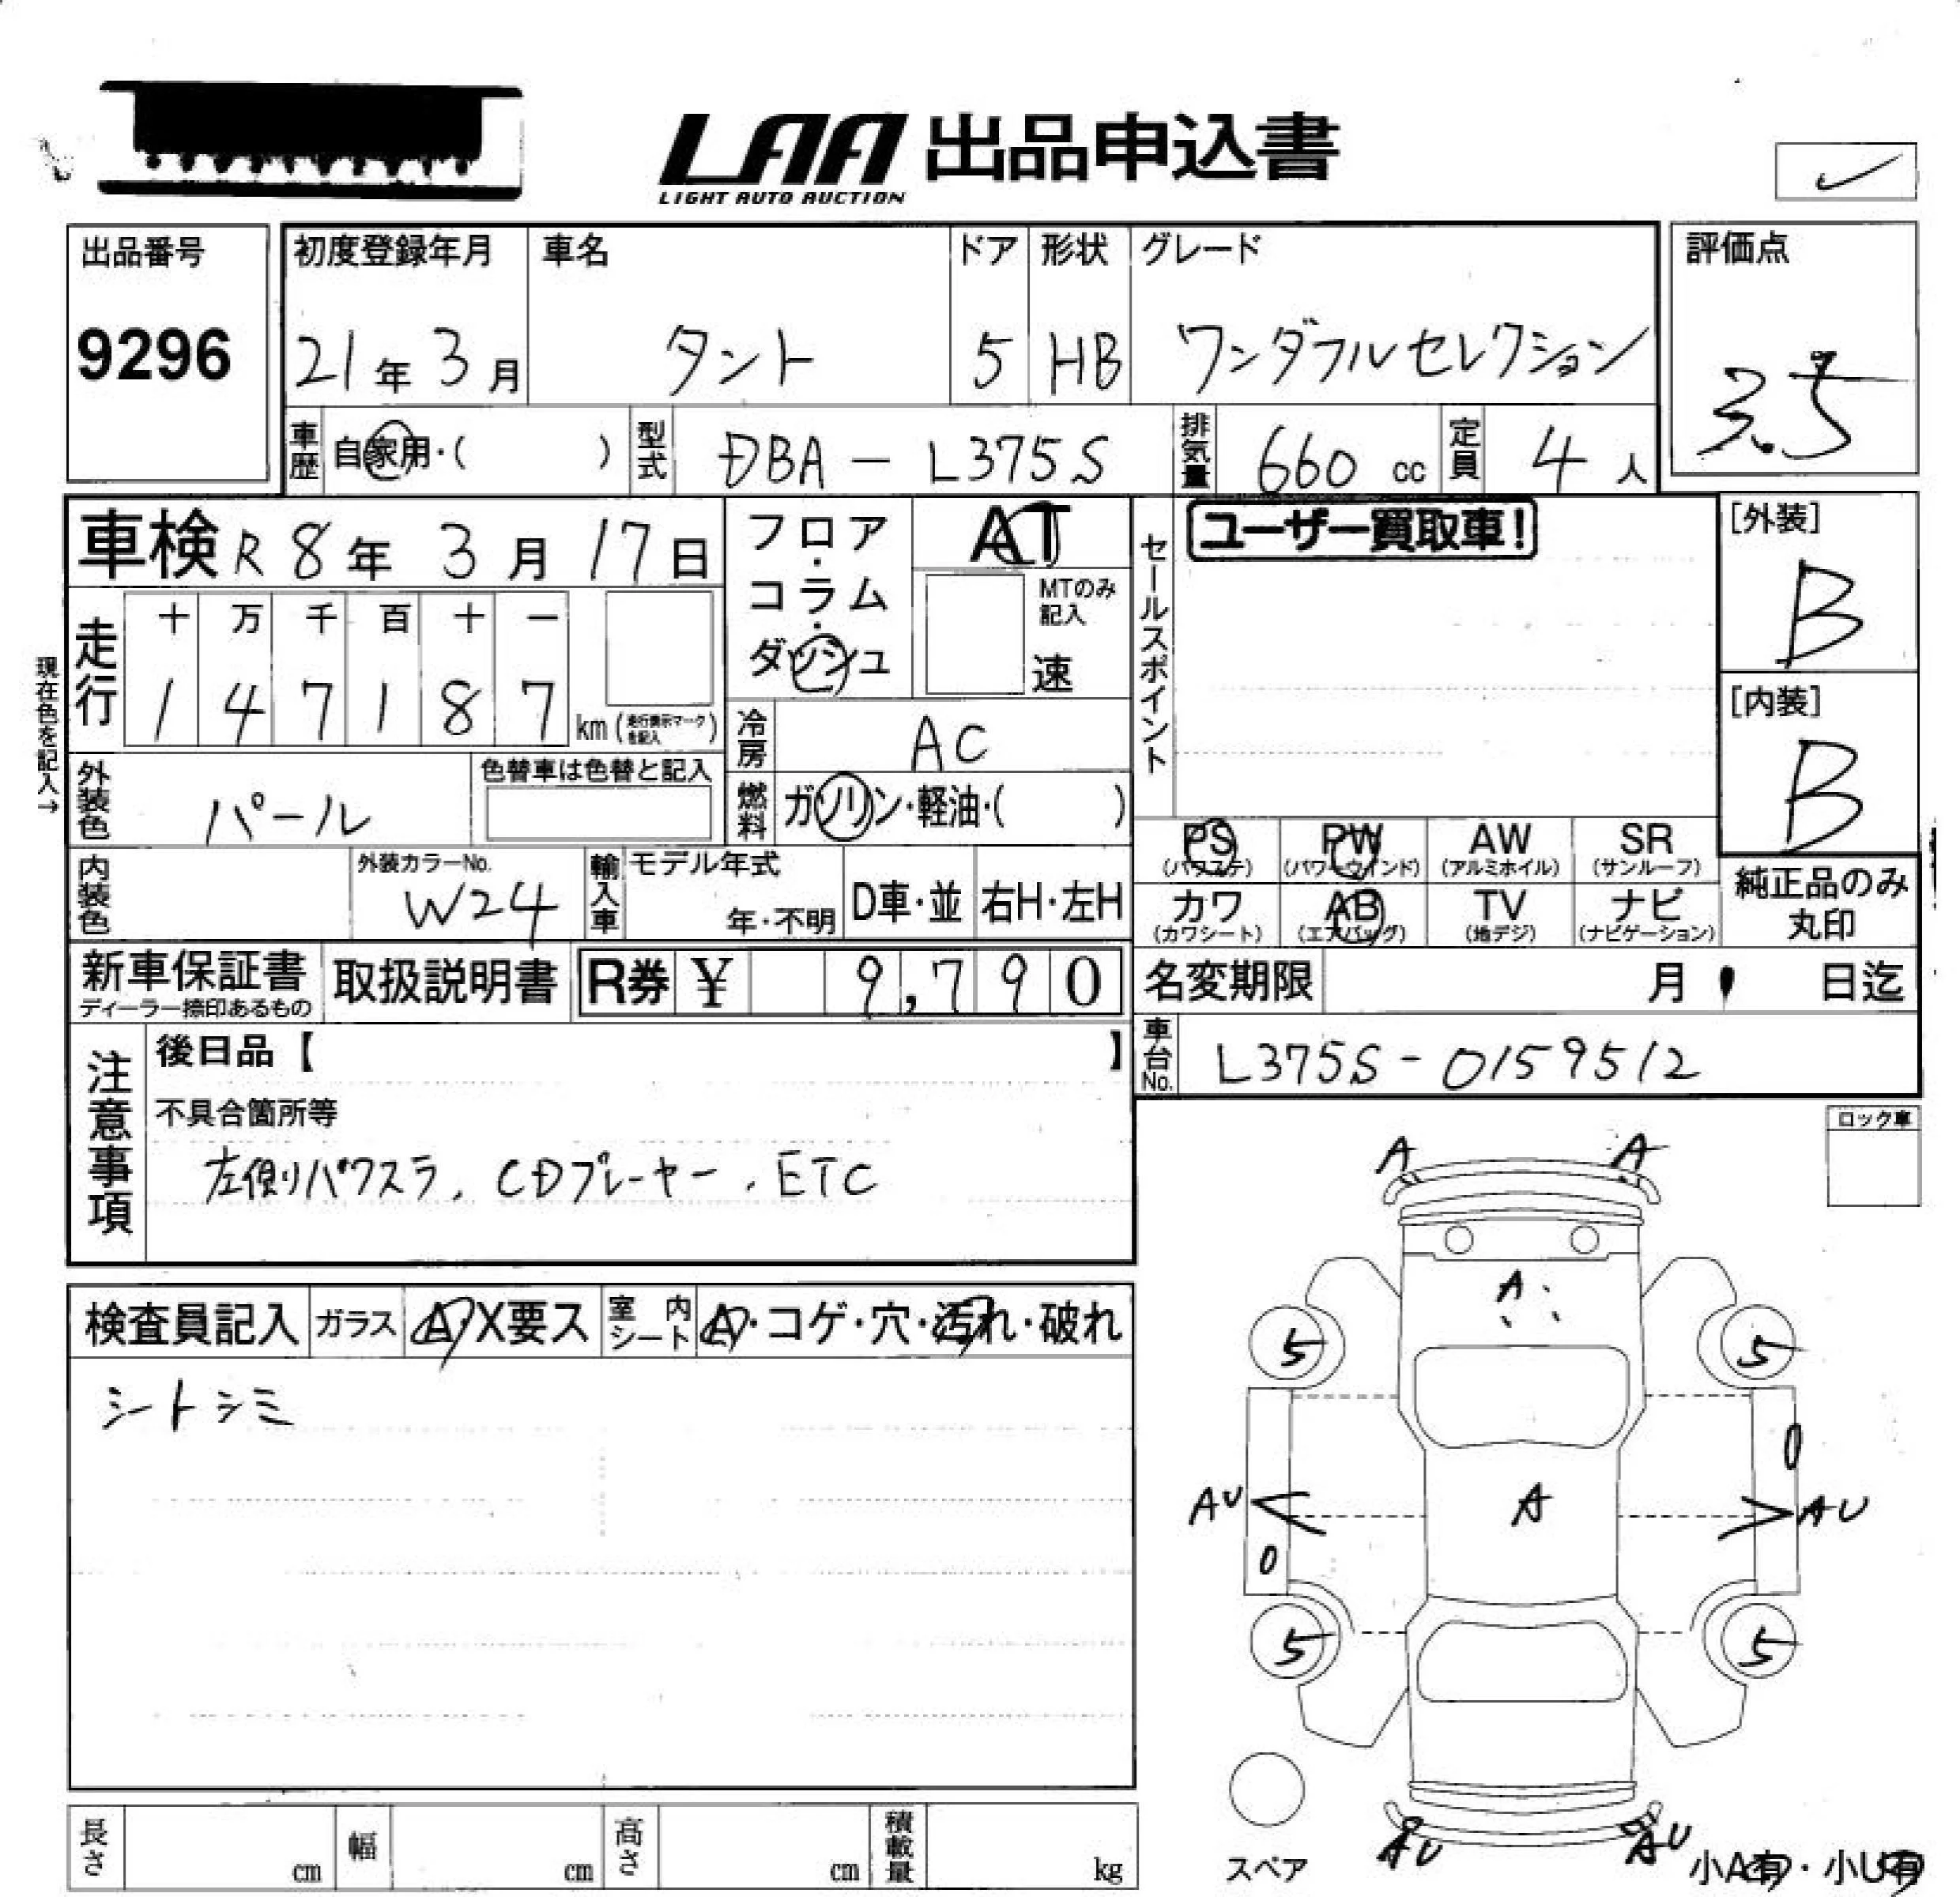 LAA 出品申込書
LIGHT AUTO AUCTION
出品番号
9296
初度登録年月
21年 3月
車名
タント
ドア
5
形状
HB
グレード
ワンダフルセレクション
評価点
3.5
車歴 自家用・( )
型式 DBA-L375S
排気量 660 cc
定員 4人
車検 R8年 3月 17日
フロア・コラム・ダッシュ
AT
MTのみ記入
速
セールスポイント
ユーザー買取車!
[外装]
B
[内装]
B
現在色を記入→
走行
十 万 千 百 十 一
1 4 7 1 8 7 km (走行表示マークを記入)
冷房 AC
外装色 パール
色替車は色替と記入
燃料 ガソリン・軽油・( )
PS (パワステ)
PW (パワーウインド)
AW (アルミホイル)
SR (サンルーフ)
カワ (カワシート)
AB (エアバッグ)
TV (地デジ)
ナビ (ナビゲーション)
純正品のみ丸印
内装色
外装カラーNo.
W24
輸入車
モデル年式
年・不明
D車・並
右H・左H
新車保証書
ディーラー捺印あるもの
取扱説明書
R券 ¥ 9,790
名変期限 月 日迄
車台No. L375S-0159512
注意事項
後日品【 】
不具合箇所等
左側リパワスラ, CDプレーヤー, ETC
ロック車
検査員記入
ガラス A・X要ス
室内シート A・コゲ・穴・汚れ・破れ
シートシミ
A A
A
5 5
0
AU A AU
0
5 5
AU AU
スペア
小A有・小U有
長さ cm
幅 cm
高さ cm
積載量 kg